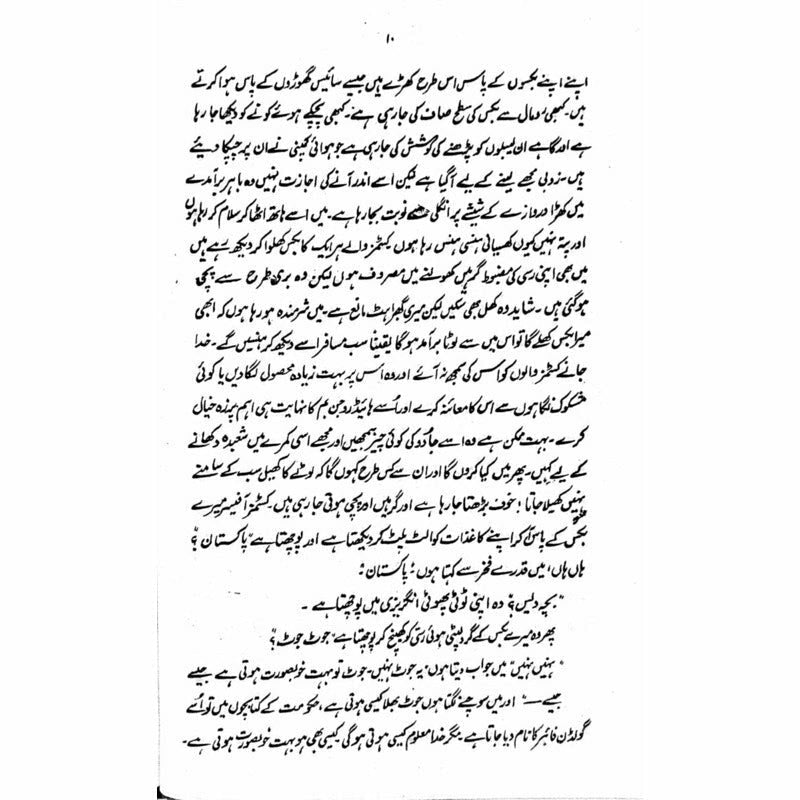 ۱۰
اپنے اپنے بکسوں کے پاس اس طرح کھڑے ہیں جیسے سائیس گھوڑوں کے پاس ہوا کرتے
ہیں۔ کبھی رومال سے بکس کی سطح صاف کی جا رہی ہے۔ کبھی پچکے ہوئے کونے کو دیکھا جا رہا
ہے اور گاہے ان لیبلوں کو پڑھنے کی کوشش کی جا رہی ہے جو ہوائی کمپنی نے ان پر چپکا دیئے
ہیں۔ زوبی مجھے لینے کے لیے آ گیا ہے لیکن اسے اندر آنے کی اجازت نہیں وہ باہر برآمدے
میں کھڑا دروازے کے شیشے پر انگلی سے نوبت بجا رہا ہے۔ میں اسے ہاتھ اٹھا کر سلام کر رہا ہوں
اور پتہ نہیں کیوں کھسیانی ہنسی ہنس رہا ہوں کسٹمز والے ہر ایک کا بکس کھلوا کر دیکھ رہے ہیں
میں بھی اپنی رسی کی مضبوط گرہیں کھولنے میں مصروف ہوں لیکن وہ بری طرح سے پچی
ہو گئی ہیں۔ شاید وہ کھل بھی سکیں لیکن میری گھبراہٹ مانع ہے۔ میں شرمندہ ہو رہا ہوں کہ ابھی
میرا بکس کھلے گا تو اس میں سے لوٹا برآمد ہو گا یقیناً سب مسافر اسے دیکھ کر ہنسیں گے۔ خدا
جانے کسٹمز والوں کو اس کی سمجھ نہ آئے اور وہ اس پر بہت زیادہ محصول لگا دیں یا کوئی
مشکوک نگاہوں سے اس کا معائنہ کرے اور اُسے ہائیڈروجن بم کا نہایت ہی اہم پرزہ خیال
کرے۔ بہت ممکن ہے وہ اسے جادُو کی کوئی چیز سمجھیں اور مجھے اسی کمرے میں شعبدہ دکھانے
کے لیے کہیں۔ پھر میں کیا کروں گا اور ان سے کس طرح کہوں گا کہ لوٹے کا کھیل سب کے سامنے
نہیں کھیلا جاتا! خوف بڑھتا جا رہا ہے اور گرہیں اور پچی ہوتی جا رہی ہیں۔ کسٹمز آفیسر میرے
بکس کے پاس آ کر اپنے کاغذات کو الٹ پلٹ کر دیکھتا ہے اور پوچھتا ہے "پاکستان؟"
ہاں ہاں، میں قدرے فخر سے کہتا ہوں، پاکستان!
"بچہ دلیں؟" وہ اپنی ٹوٹی پھوٹی انگریزی میں پوچھتا ہے۔
پھر وہ میرے بکس کے گرد لپٹی ہوئی رسّی کو کھینچ کر پوچھتا ہے "جوٹ جوٹ؟"
"نہیں نہیں" میں جواب دیتا ہوں "یہ جوٹ نہیں۔ جوٹ تو بہت خوبصورت ہوتی ہے جیسے
جیسے —" اور میں سوچنے لگتا ہوں جوٹ بھلا کیسی ہوتی ہے، حکومت کے کتابچوں میں تو اُسے
گولڈن فائبر کا نام دیا جاتا ہے۔ مگر خدا معلوم کیسی ہوتی ہو گی۔ کیسی بھی ہو بہت خوبصورت ہوتی ہے۔